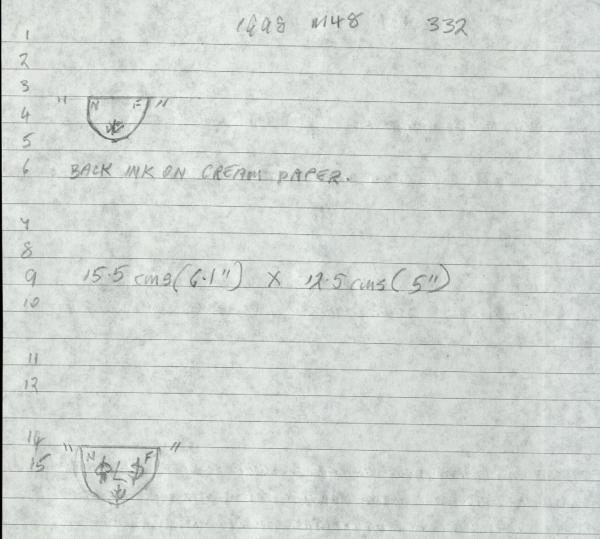 1998 M48 332
1
2
3
" N F "
4
5
6 BACK INK ON CREAM PAPER.
7
8
9 15.5 cms (6.1") X 12.5 cms (5")
10
11
12
14 " N F "
15 $ L $